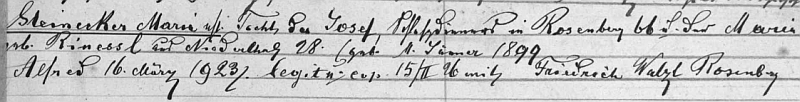 Steinecker Maria ehl. Tocht. des Josef, Schloßdieners in Rosenberg 66 u. der Maria
geb. Kinessl aus Niederthal 28. (geb. 1. Jänner 1899
Alfred 16. März 1923). legit. 15/II 26 mit Friedrich Watzl Rosenberg